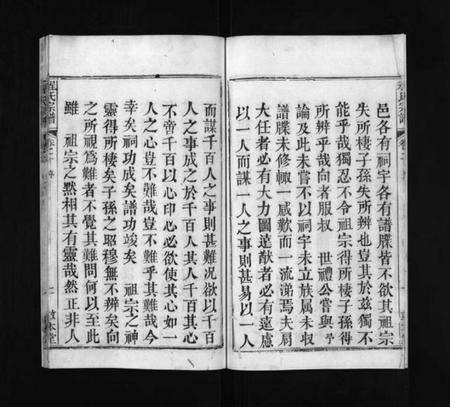 邑各有祠宇各有譜牒皆不欲其祖宗
失所棲子孫失所辨也豈其於茲獨不
能乎哉獨忍不令祖宗得所棲子孫得
所辨乎哉向者服叔 世禮公嘗與予
論及此未嘗不以祠宇未立族屬未收
譜牒未修輙一感歎而一流涕焉夫肩
大任者必有大力圖遠猷者必有遠慮
以一人而謀一人之事則甚易以一人
而謀千百人之事則甚難况欲以千百
人之事成之於千百人其人千百其心
不啻千百以心印心必欲使其心如一
人之心豈不難哉豈不難乎其難哉今
幸矣祠功成矣譜功竣矣 祖宗之神
靈得所棲矣子孫之昭穆無不辨矣向
之所視為難者不覺其難問何以至此
雖 祖宗之黙相其有靈哉然正非人
程氏宗譜 卷之 序 二 敘本堂